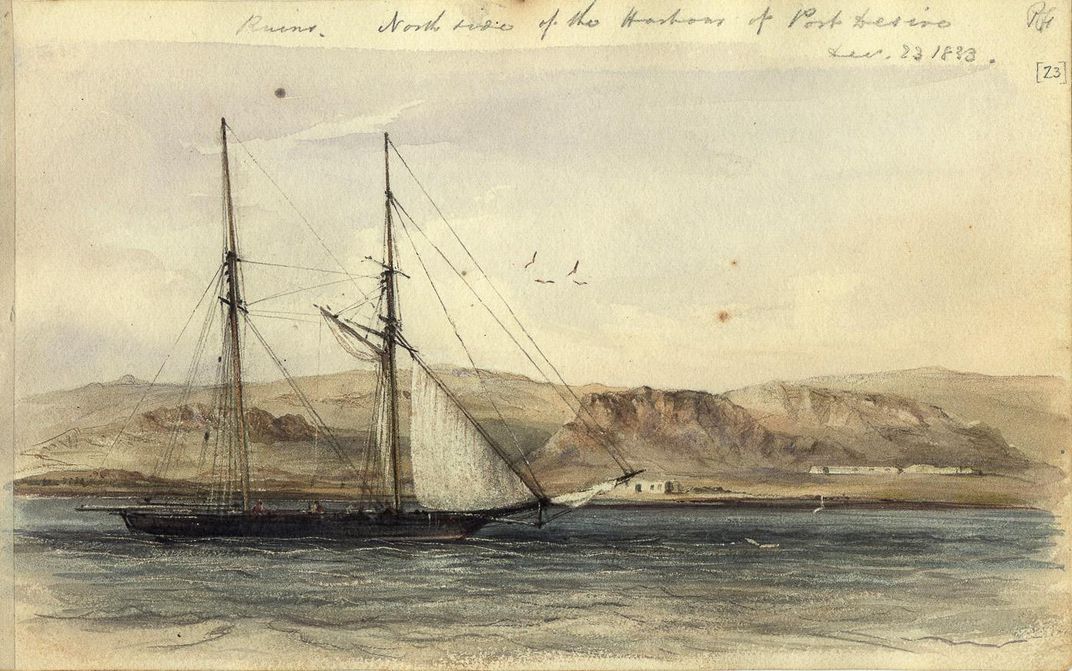 Ruins. North side of the Harbour of Port Desire
Dec. 23 1833.
[23]